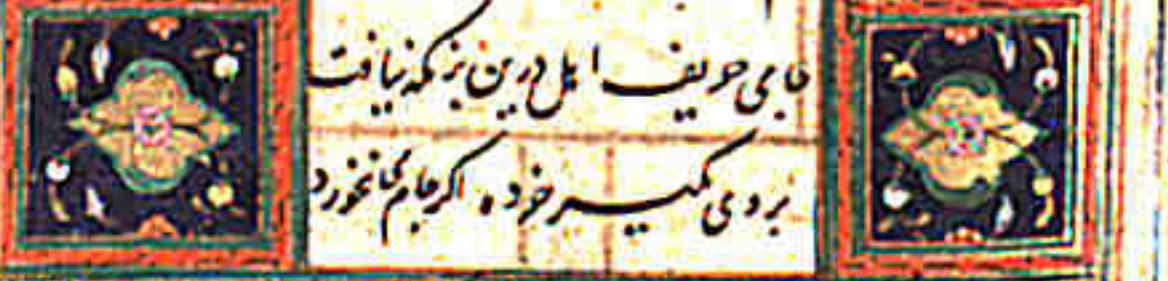 جامی حریف اهل درین بزمگه نیافت
بروی مگیر خرده اگر جام می نخورد